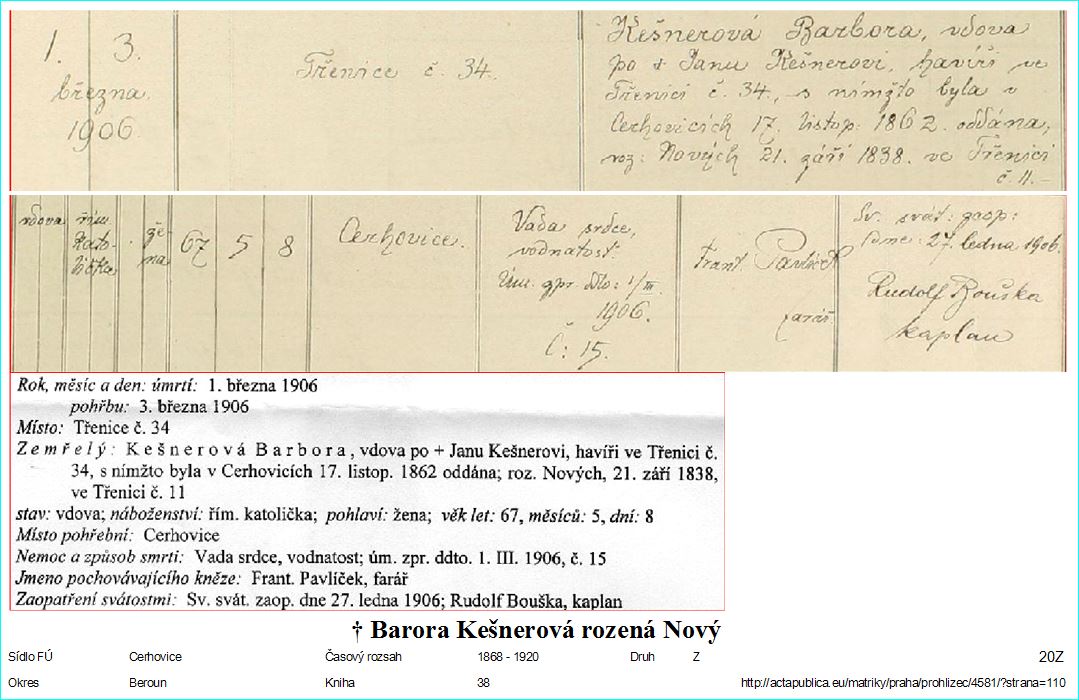 1. 3.
března
1906.
Třenice č. 34.
Kešnerová Barbora, vdova
po + Janu Kešnerovi, havíři ve
Třenici č. 34., s nímžto byla v
Cerhovicích 17. listop. 1862. oddána;
roz: Nových 21. září 1838. ve Třenici
č. 11.-
vdova
řím.
kato-
lička
že-
na
67 5 8
Cerhovice.
Vada srdce,
vodnatost.
Úm. zpr. ddto: 1/III.
1906.
Č: 15.
Frant. Pavlíček
farář.
Sv. svát: zaop:
dne: 27. ledna 1906.
Rudolf Bouška
kaplan
Rok, měsíc a den: úmrtí: 1. března 1906
pohřbu: 3. března 1906
Místo: Třenice č. 34
Zemřelý: Kešnerová Barbora, vdova po + Janu Kešnerovi, havíři ve Třenici č.
34, s nímžto byla v Cerhovicích 17. listop. 1862 oddána; roz. Nových, 21. září 1838,
ve Třenici č. 11
stav: vdova; náboženství: řím. katolička; pohlaví: žena; věk let: 67, měsíců: 5, dní: 8
Místo pohřební: Cerhovice
Nemoc a způsob smrti: Vada srdce, vodnatost; úm. zpr. ddto. 1. III. 1906, č. 15
Jmeno pochovávajícího kněze: Frant. Pavlíček, farář
Zaopatření svátostmi: Sv. svát. zaop. dne 27. ledna 1906; Rudolf Bouška, kaplan
† Barora Kešnerová rozená Nový
Sídlo FÚ Cerhovice Časový rozsah 1868 - 1920 Druh Z 20Z
Okres Beroun Kniha 38 http://actapublica.eu/matriky/praha/prohlizec/4581/?strana=110